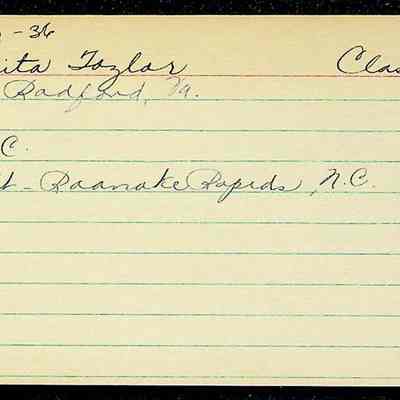 -36
ita Taylor Clas
Radford, Va.
C.
t - Roanoke Rapids, N.C.